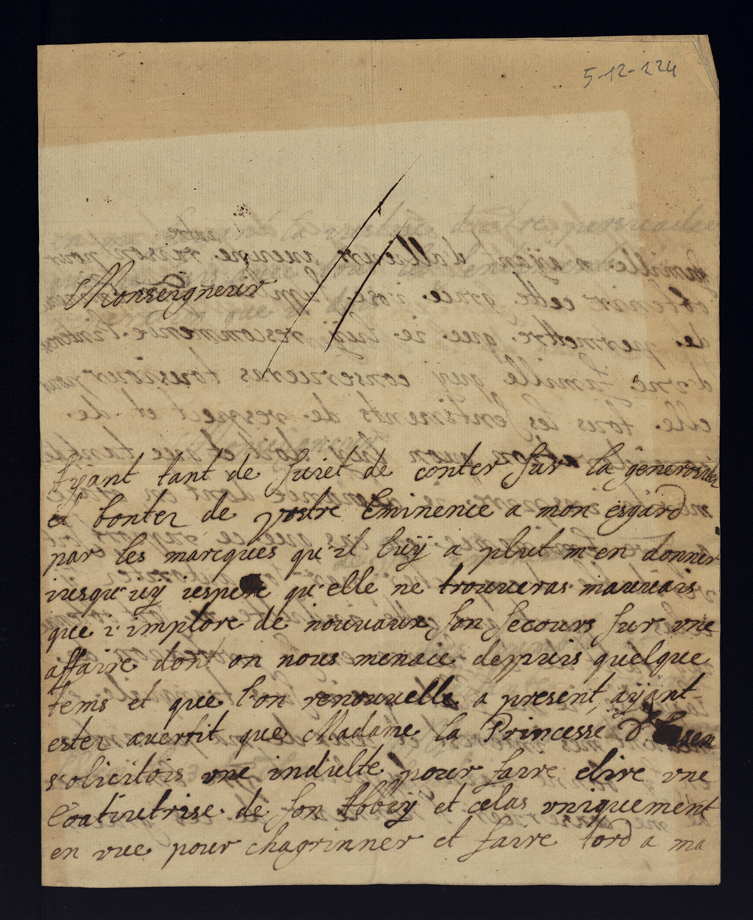 5-12-224
Monseigneur
Ayant tant de suret de conter sur la generositez
et bontez de vostre Eminence a mon esgard
par les marques qu'il luÿ a plut m'en donner
iusqu'icy iespere qu'elle ne trouveras mauvais
que i'implore de nouvaux son secours sur vne
affaire dont on nous menace deppuis quelque
tems et que l'on renouvelle a present aÿant
ester avertit que Madame la Princesse
solicitois vne indulte pour faire elire vne
Coatiutrise de son Abbeÿ et celas vniquement
en vue pour chagrinner et faire tord a ma